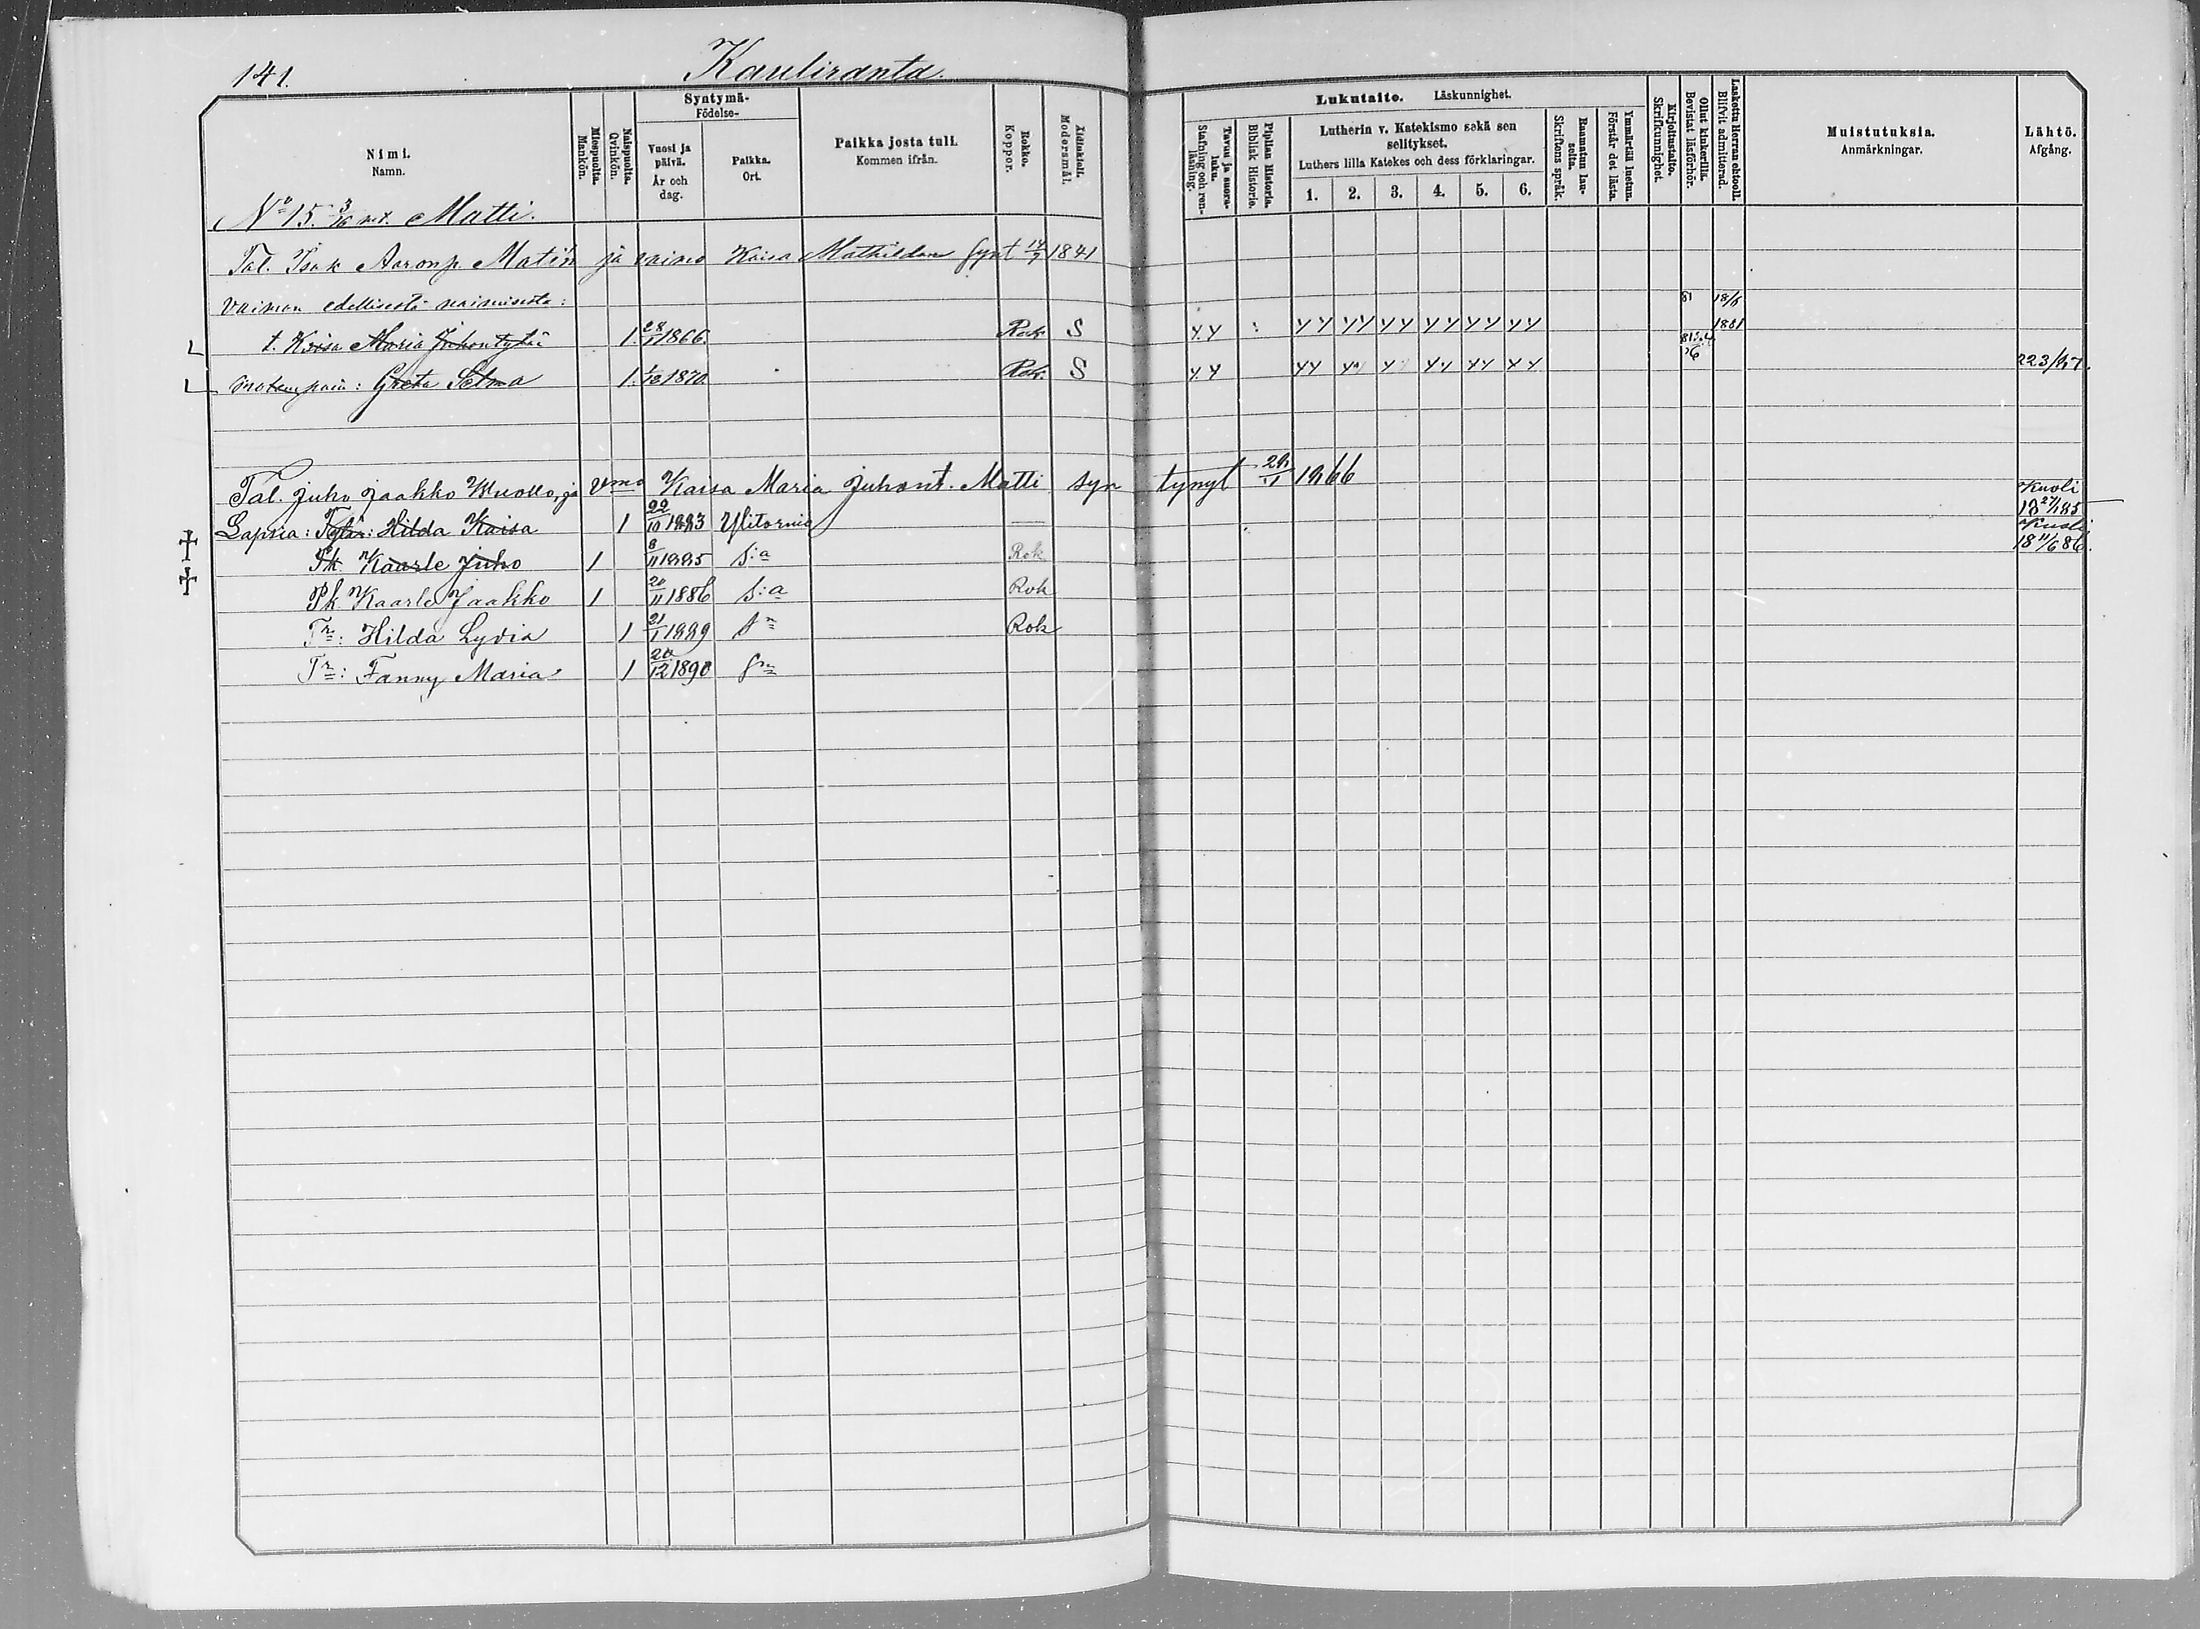 141.
Kauliranta.
Nimi.
Namn.
Miespuolta.
Mankön.
Naispuolta.
Qvinkön.
Syntymä-
Födelse-
Vuosi ja päivä.
År och dag.
Paikka.
Ort.
Paikka josta tuli.
Kommen ifrån.
Rokko.
Koppor.
Äidinkieli.
Modersmål.
Lukutaito. Läskunnighet.
Tavuu ja suora-luku.
Stafning och ren-läsning.
Piplian Historia.
Biblisk Historie.
Lutherin v. Katekismo sekä sen selitykset.
Luthers lilla Katekes och dess förklaringar.
1. 2. 3. 4. 5. 6.
Raamatun lau-seita.
Skriftens språk.
Ymmärtää luetun.
Förstår det lästa.
Kirjoitustaito.
Skrifkunnighet.
Ollut kinkerillä.
Bevistat läsförhör.
Laskettu Herran ehtooll.
Blifvit admitterad.
Muistutuksia.
Anmärkningar.
Lähtö.
Afgång.
No 15. 3/16 mt. Matti.
Tal. Isak Aaronp. Matin ja vaimo Kaisa Mathildan synt 14/7 1841
vaimon edellisestä naimisesta:
81 18/6
t. Kaisa Maria Juhontytär 1. 28/11 1866. Rok S 1881
Greta Selma 1. 1870. Rok. S 223/87.
Tal. Juho Jaakko Wuollo, ja vmo Kaisa Maria Juhont. Matti syntynyt 28/11 1866
Lapsia: Tytär: Hilda Kaisa 1 22/10 1883 Ylitornio Kuoli 18 27/1 85
Pk. Kaarle Juho 1 8/11 1885 s:a Rok Kuoli 18 11/6 86.
Pk. Kaarle Jaakko 1 20/11 1886 s:a Rok
Tr: Hilda Lydia 1 21/1 1889 Rok
Tr: Fanny Maria 1 20/12 1890